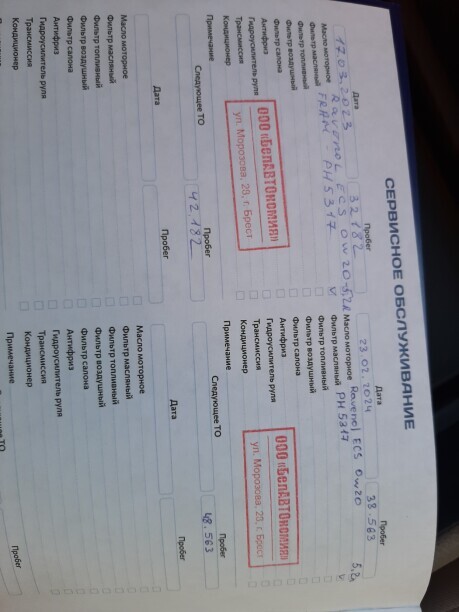 СЕРВИСНОЕ ОБСЛУЖИВАНИЕ
Дата Пробег
17.03.2023 32182
Масло моторное Ravenol ECS 0w20 5,2л
Фильтр масляный FRAM PH5317 v
Фильтр топливный
Фильтр воздушный
Фильтр салона
Антифриз
Гидроусилитель руля
Трансмиссия
Кондиционер
ООО «БелАВТОКОМИЯ»
ул. Морозова, 28, г. Брест
Примечание
Следующее ТО Пробег
42.182
Дата Пробег
Масло моторное
Фильтр масляный
Фильтр топливный
Фильтр воздушный
Фильтр салона
Антифриз
Гидроусилитель руля
Трансмиссия
Кондиционер
Дата Пробег
23.02.2024 38.563
Масло моторное Ravenol ECS 0w20 5,2л
Фильтр масляный PH5317 v
Фильтр топливный
Фильтр воздушный
Фильтр салона
Антифриз
Гидроусилитель руля
Трансмиссия
Кондиционер
ООО «БелАВТОКОМИЯ»
ул. Морозова, 28, г. Брест
Примечание
Следующее ТО Пробег
48.563
Дата Пробег
Масло моторное
Фильтр масляный
Фильтр топливный
Фильтр воздушный
Фильтр салона
Антифриз
Гидроусилитель руля
Трансмиссия
Кондиционер
Примечание
Пробег